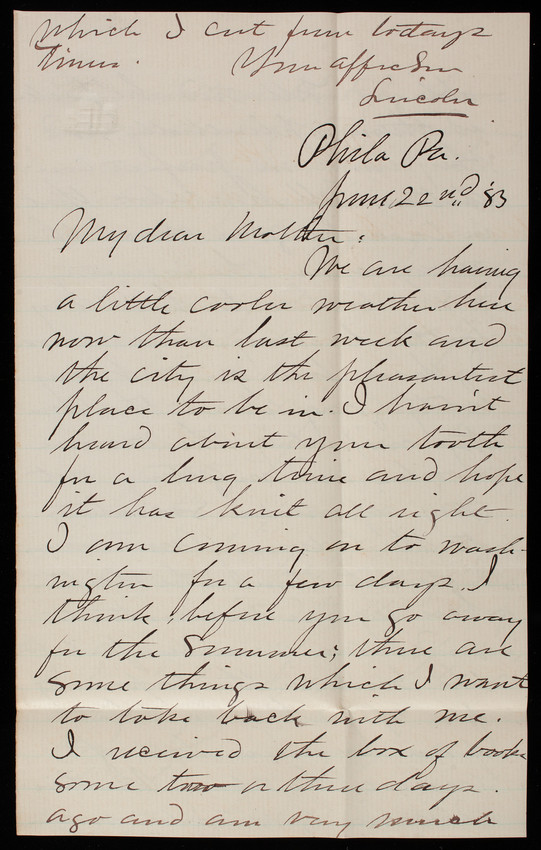 which I cut from todays
Times. Your affec Son
Lincoln
Phila Pa.
June 22nd '83
My dear Mother:
We are having
a little cooler weather here
now than last week and
the city is the pleasantest
place to be in. I havn't
heard about your tooth
for a long time and hope
it has knit all right.
I am coming on to Wash-
ington for a few days, I
think, before you go away
for the summer; there are
some things which I want
to take back with me.
I received the box of books
some two or three days
ago and am very much